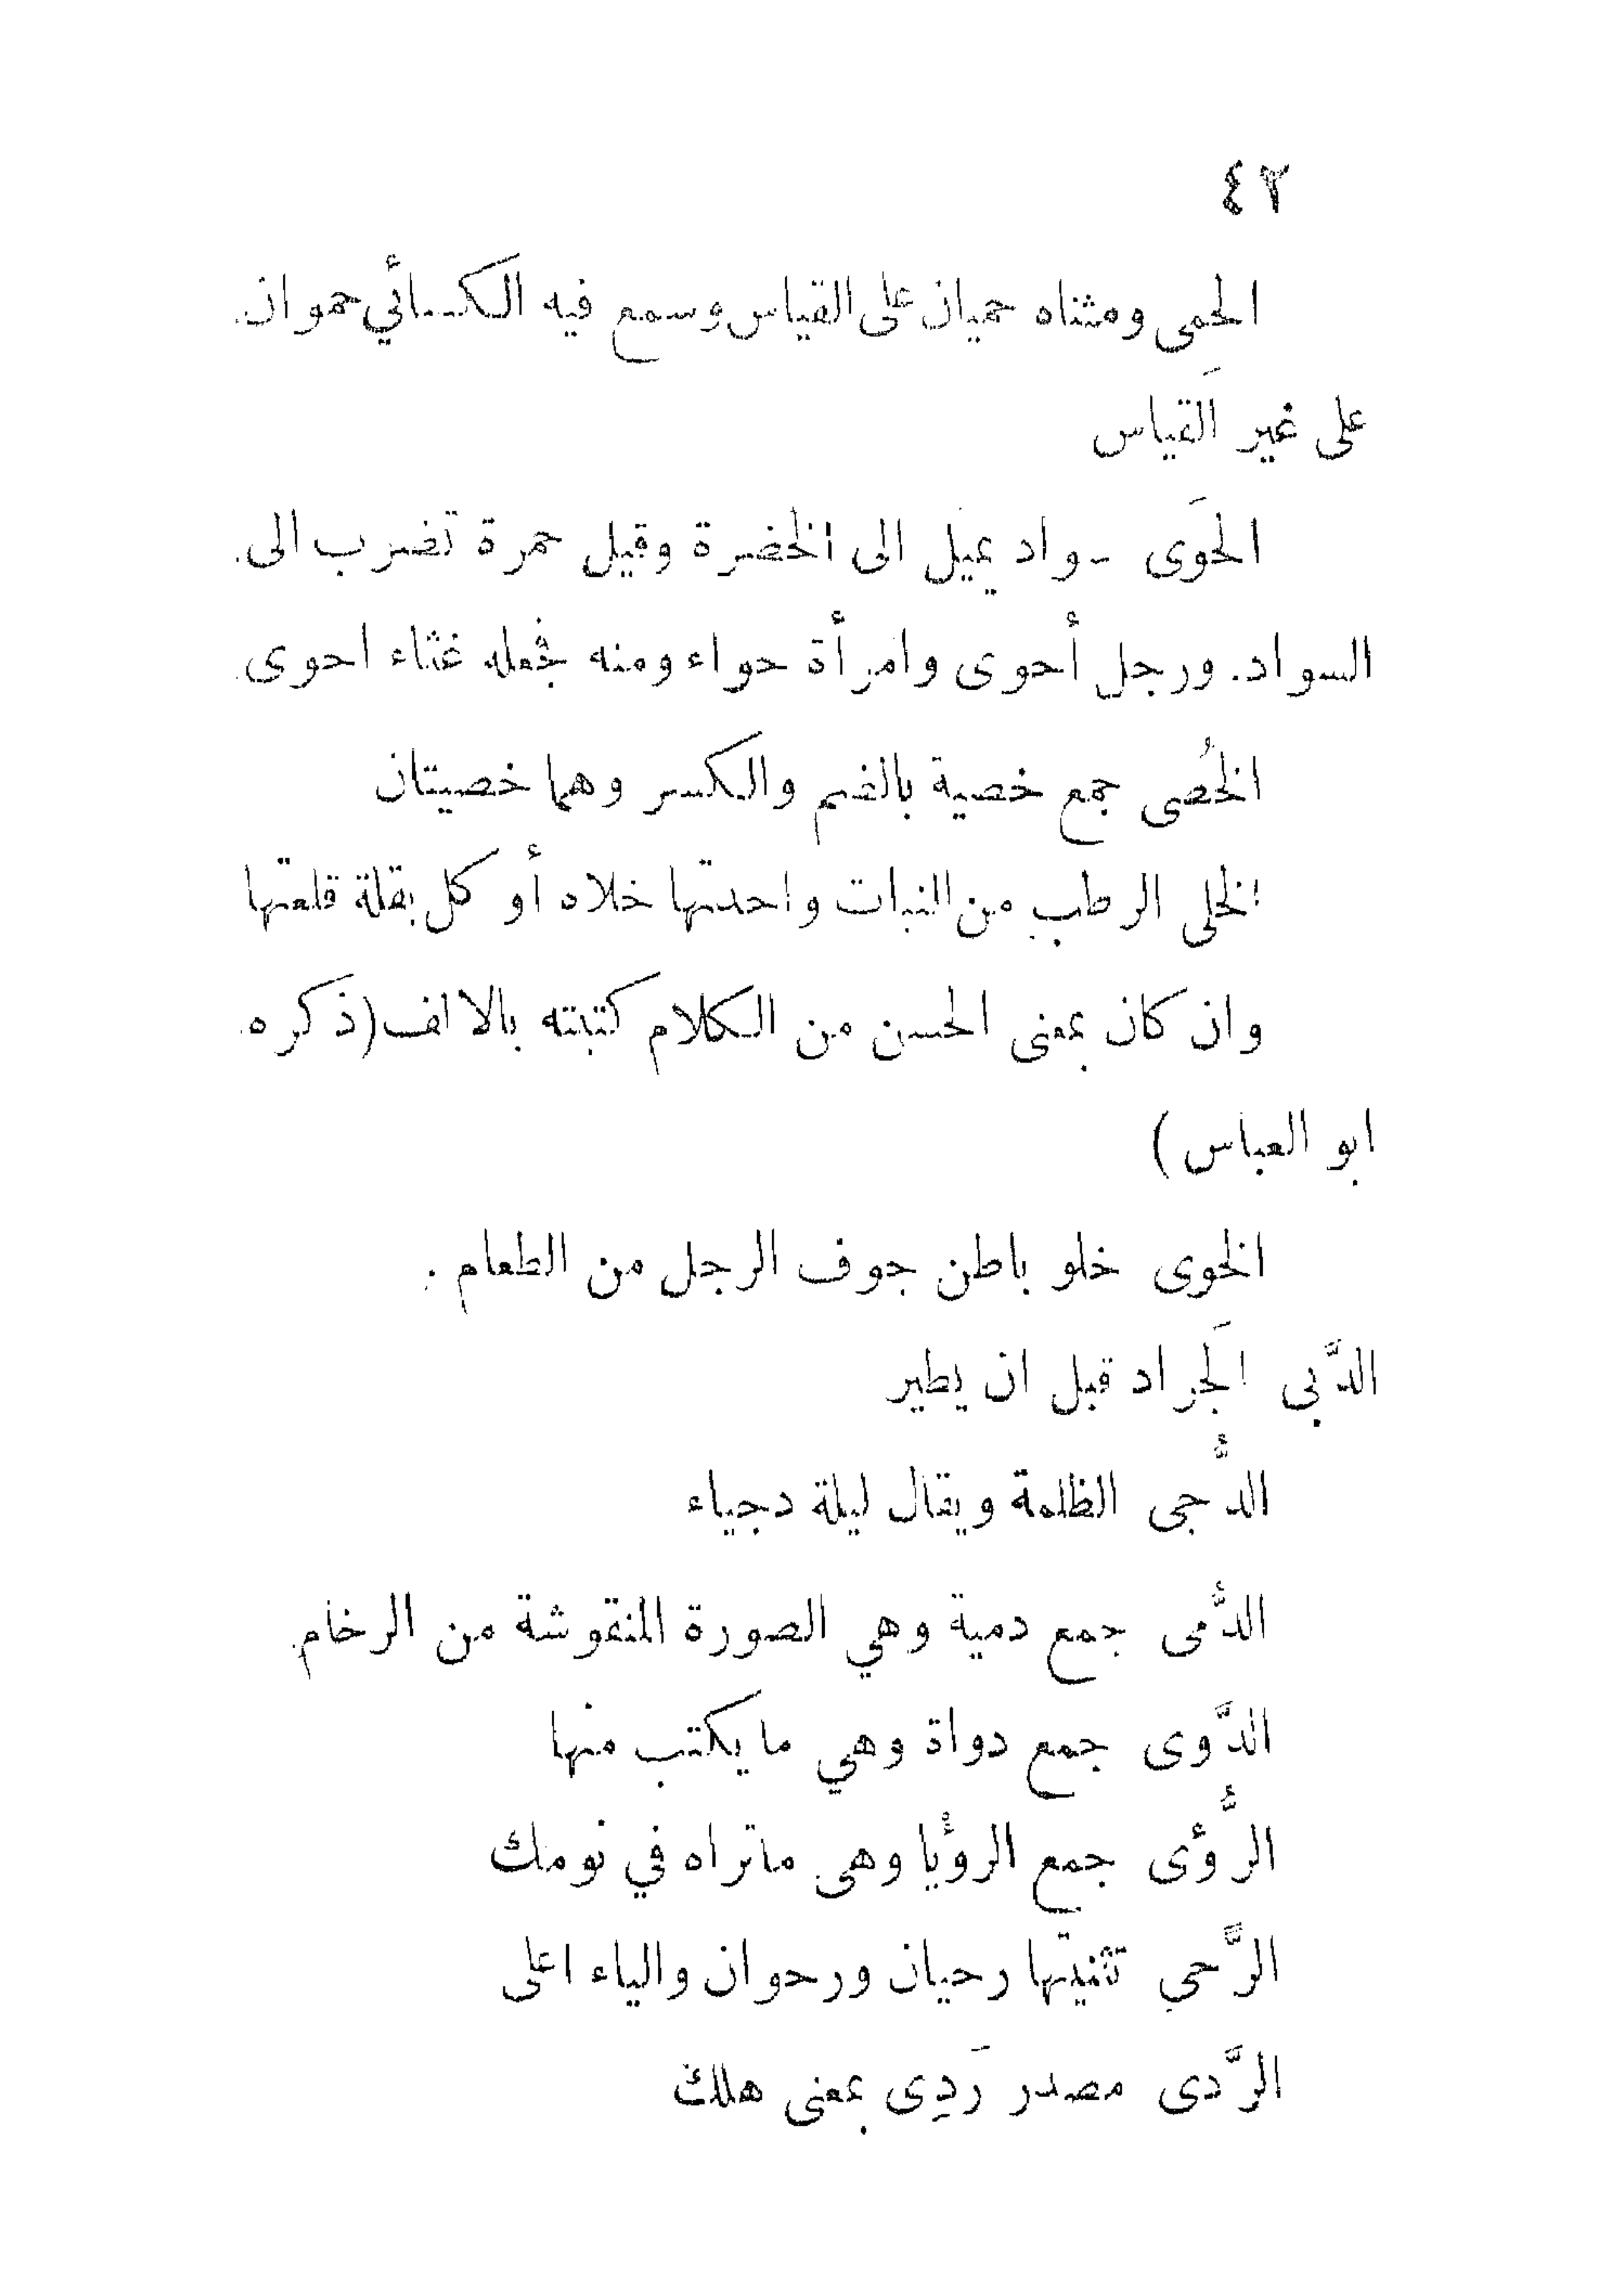 ٤٢
الحمى ومثناه حميان على القياس وسمع فيه الكسائي حموان
على غير القياس
الحَوى سواد يميل الى الخضرة وقيل حمرة تضرب الى
السواد. ورجل أحوى وامرأة حواء ومنه فجعله غثاء احوى
الخُصى جمع خصية بالضم والكسر وهما خصيتان
الخلى الرطب من النبات واحدتها خلاه أو كل بقلة قلعتها
وان كان بمعنى الحسن من الكلام كتبته بالالف (ذكره
ابو العباس)
الخوى خلو باطن جوف الرجل من الطعام.
الدَّبى الجَراد قبل ان يطير
الدُّجى الظلمة ويقال ليلة دجياء
الدُّمى جمع دمية وهي الصورة المنقوشة من الرخام
الدَّوى جمع دواة وهي ما يكتب منها
الرُّؤى جمع الرؤيا وهى ماتراه في نومك
الرَّحي تثنيتها رحيان ورحوان والياء اعلى
الرَّدى مصدر رَدِى بمعنى هلك